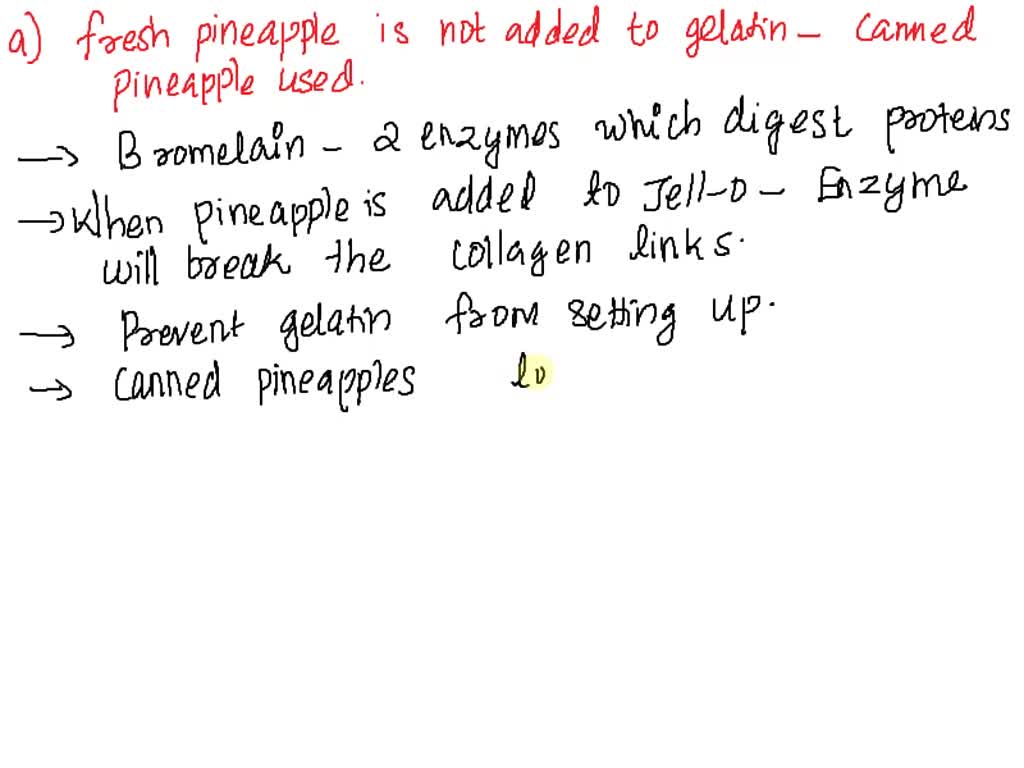 a) fresh pineapple is not added to gelatin - canned
pineapple used.
→ Bromelain - 2 enzymes which digest proteins
→ When pineapple is added to Jell-o - Enzyme
will break the collagen links.
→ Prevent gelatin from setting up.
→ Canned pineapples lo